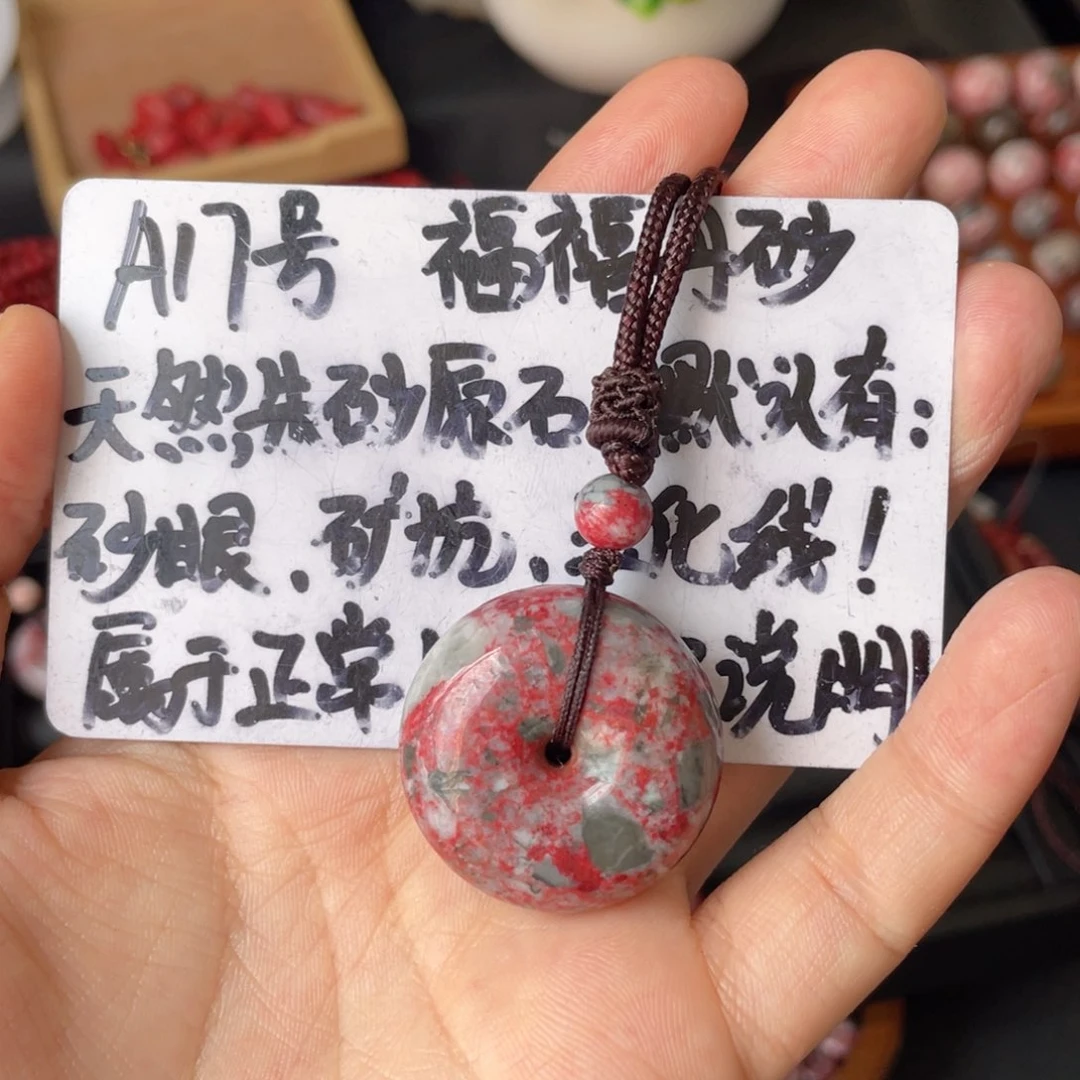 A17号 福禧丹砂
天然朱砂原石 默认有:
砂眼.矿坑. 化线!
属于正常 说明